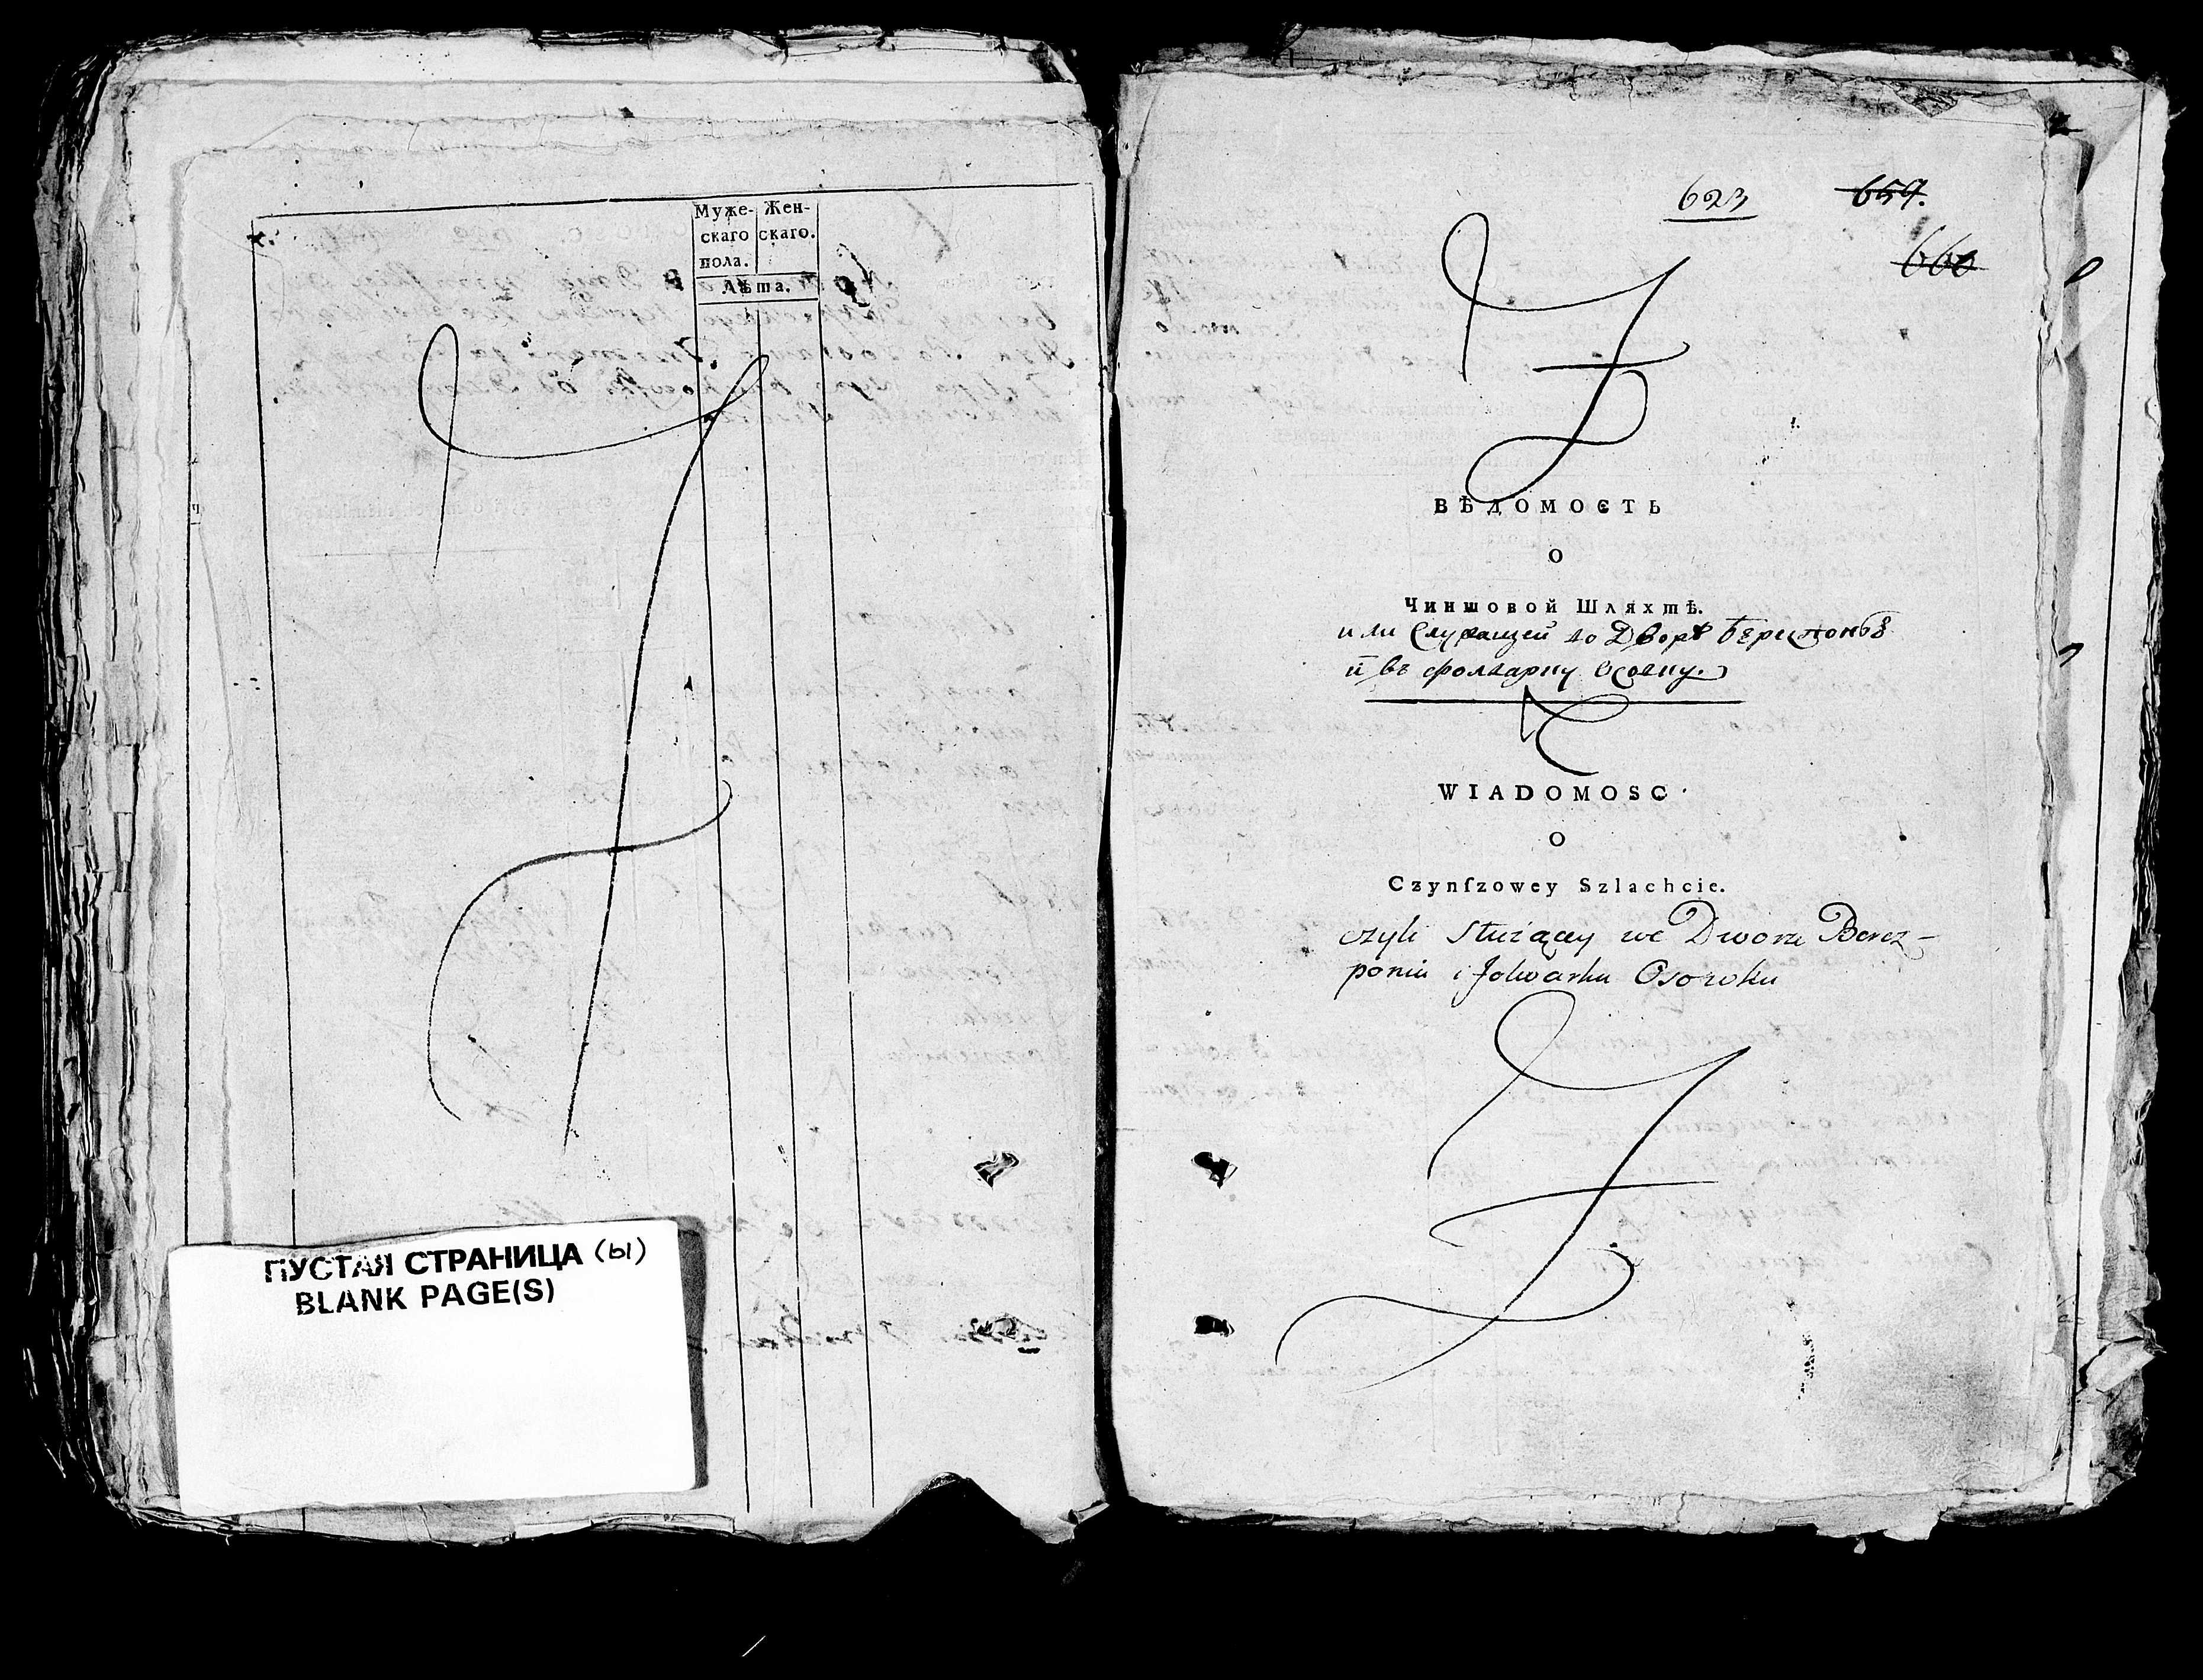 Муже-
скаго
пола.
Жен-
скаго.
Лѣта.
ПУСТАЯ СТРАНИЦА (ы)
BLANK PAGE(S)
623
659.
660
ВѢДОМОСТЬ
О
Чиншовой Шляхтѣ.
или Служащей до Двора
и въ фолварку
WIADOMOSC
O
Czynſzowey Szlachcie.
czyli Służącey we Dworze Berez-
poniu i folwarku Osowku